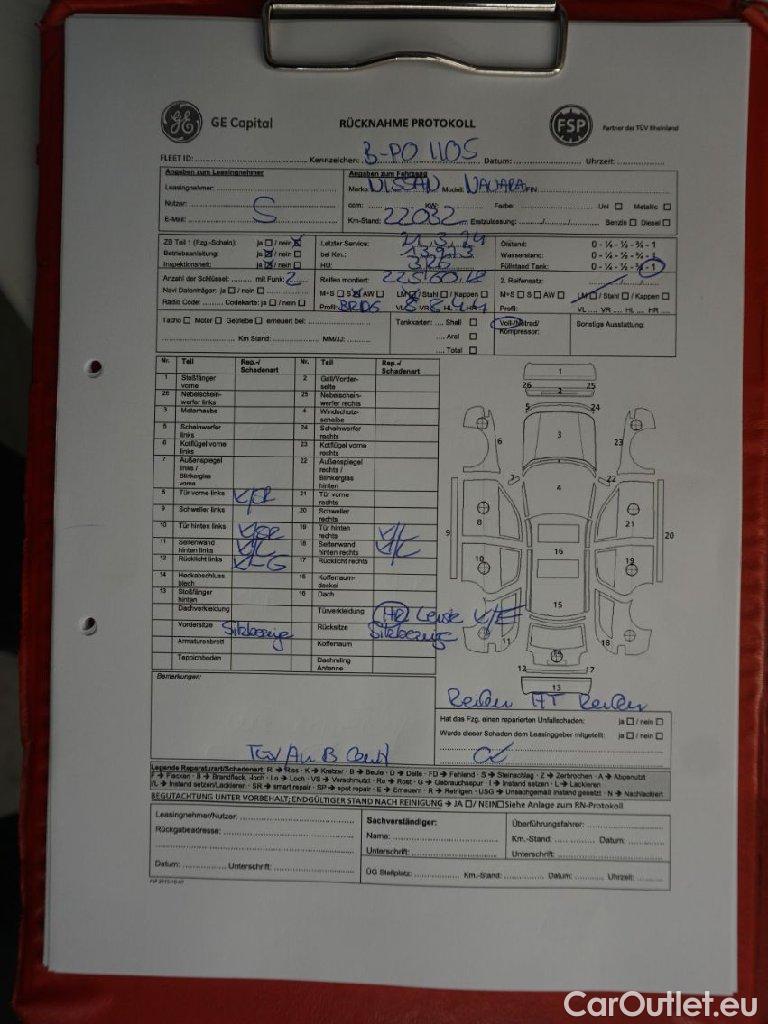 GE Capital RÜCKNAHME PROTOKOLL FSP Partner der TÜV Rheinland
FLEET ID: Kennzeichen: B-PO 1105 Datum: Uhrzeit:
Angaben zum Leasingnehmer Angaben zum Fahrzeug
Leasingnehmer: Marke NISSAN Modell: NAVARA FIN
Nutzer: S ccm: KW: Farbe: Uni Metallic
E-Mail: Km-Stand: 22032 Erstzulassung: Benzin Diesel
ZB Teil 1 (Fzg.-Schein): ja / nein Letzter Service: Ölstand: 0 - ¼ - ½ - ¾ - 1
Betriebsanleitung: ja / nein bei Km.: Wasserstand: 0 - ¼ - ½ - ¾ - 1
Inspektionsheft: ja / nein HU: Füllstand Tank: 0 - ¼ - ½ - ¾ - 1
Anzahl der Schlüssel: mit Funk: 2 Reifen montiert: 2. Reifensatz:
Navi Datenträger: ja / nein M+S S AW LM / Stahl / Kappen M+S S AW LM / Stahl / Kappen
Radio Code: Codekarte: ja / nein Profil: VL VR HL HR Profil: VL VR HL HR
Tacho Motor Getriebe erneuert bei: Tankkarten: Shell Voll-/Notrad/ Sonstige Ausstattung:
Kompressor:
Aral
Km Stand: MM/JJ: Total
Nr. Teil Rep.-/ Schadenart Nr. Teil Rep.-/ Schadenart
1 Stoßfänger vorne 2 Grill/Vorderseite
26 Nebelscheinwerfer links 25 Nebelscheinwerfer rechts
3 Motorhaube 4 Windschutzscheibe
5 Scheinwerfer links 24 Scheinwerfer rechts
6 Kotflügel vorne links 23 Kotflügel vorne rechts
7 Außenspiegel links / Blinkerglas vorne 22 Außenspiegel rechts / Blinkerglas hinten
8 Tür vorne links 21 Tür vorne rechts
9 Schweller links 20 Schweller rechts
10 Tür hinten links 19 Tür hinten rechts K/L
11 Seitenwand hinten links K/L 18 Seitenwand hinten rechts K/L
12 Rücklicht links 17 Rücklicht rechts
14 Heckabschlussblech 15 Kofferraumdeckel
13 Stoßfänger hinten 16 Dach
Dachverkleidung Türverkleidung
Vordersitze Sitzbezüge Rücksitze Sitzbezüge
Armaturenbrett Kofferraum
Teppichboden Dachreling Antenne
1
26 25
2
5 24
6 3 23
7 4 22
8 21
9 20
10 16 19
15
11 18
14
12 17
13
Bemerkungen:
Hat das Fzg. einen reparierten Unfallschaden: ja / nein
Wurde dieser Schaden dem Leasinggeber mitgeteilt: ja / nein
Legende Reparaturart/Schadenart R → Riss · K → Kratzer · B → Beule · D → Delle · FD → Fehlend · S → Steinschlag · Z → Zerbrochen · A → Abgenutzt
F → Flecken · B → Brandfleck, -loch · Lo → Loch · VS → Verschmutzt · Ro → Rost · G → Gebrauchsspur · I → Instand setzen · L → Lackieren
I/L → Instand setzen/Lackieren · SR → smart repair · SP → spot repair · E → Erneuern · R → Reinigen · USG → Unsachgemäß instand gesetzt · N → Nachlackiert
BEGUTACHTUNG UNTER VORBEHALT; ENDGÜLTIGER STAND NACH REINIGUNG → JA / NEIN Siehe Anlage zum RN-Protokoll
Leasingnehmer/Nutzer: Sachverständiger: Überführungsfahrer:
Rückgabeadresse: Name: Km.-Stand: Datum:
Unterschrift: Unterschrift:
Datum: Unterschrift: ÜG Stellplatz: Km.-Stand: Datum: Uhrzeit:
CarOutlet.eu